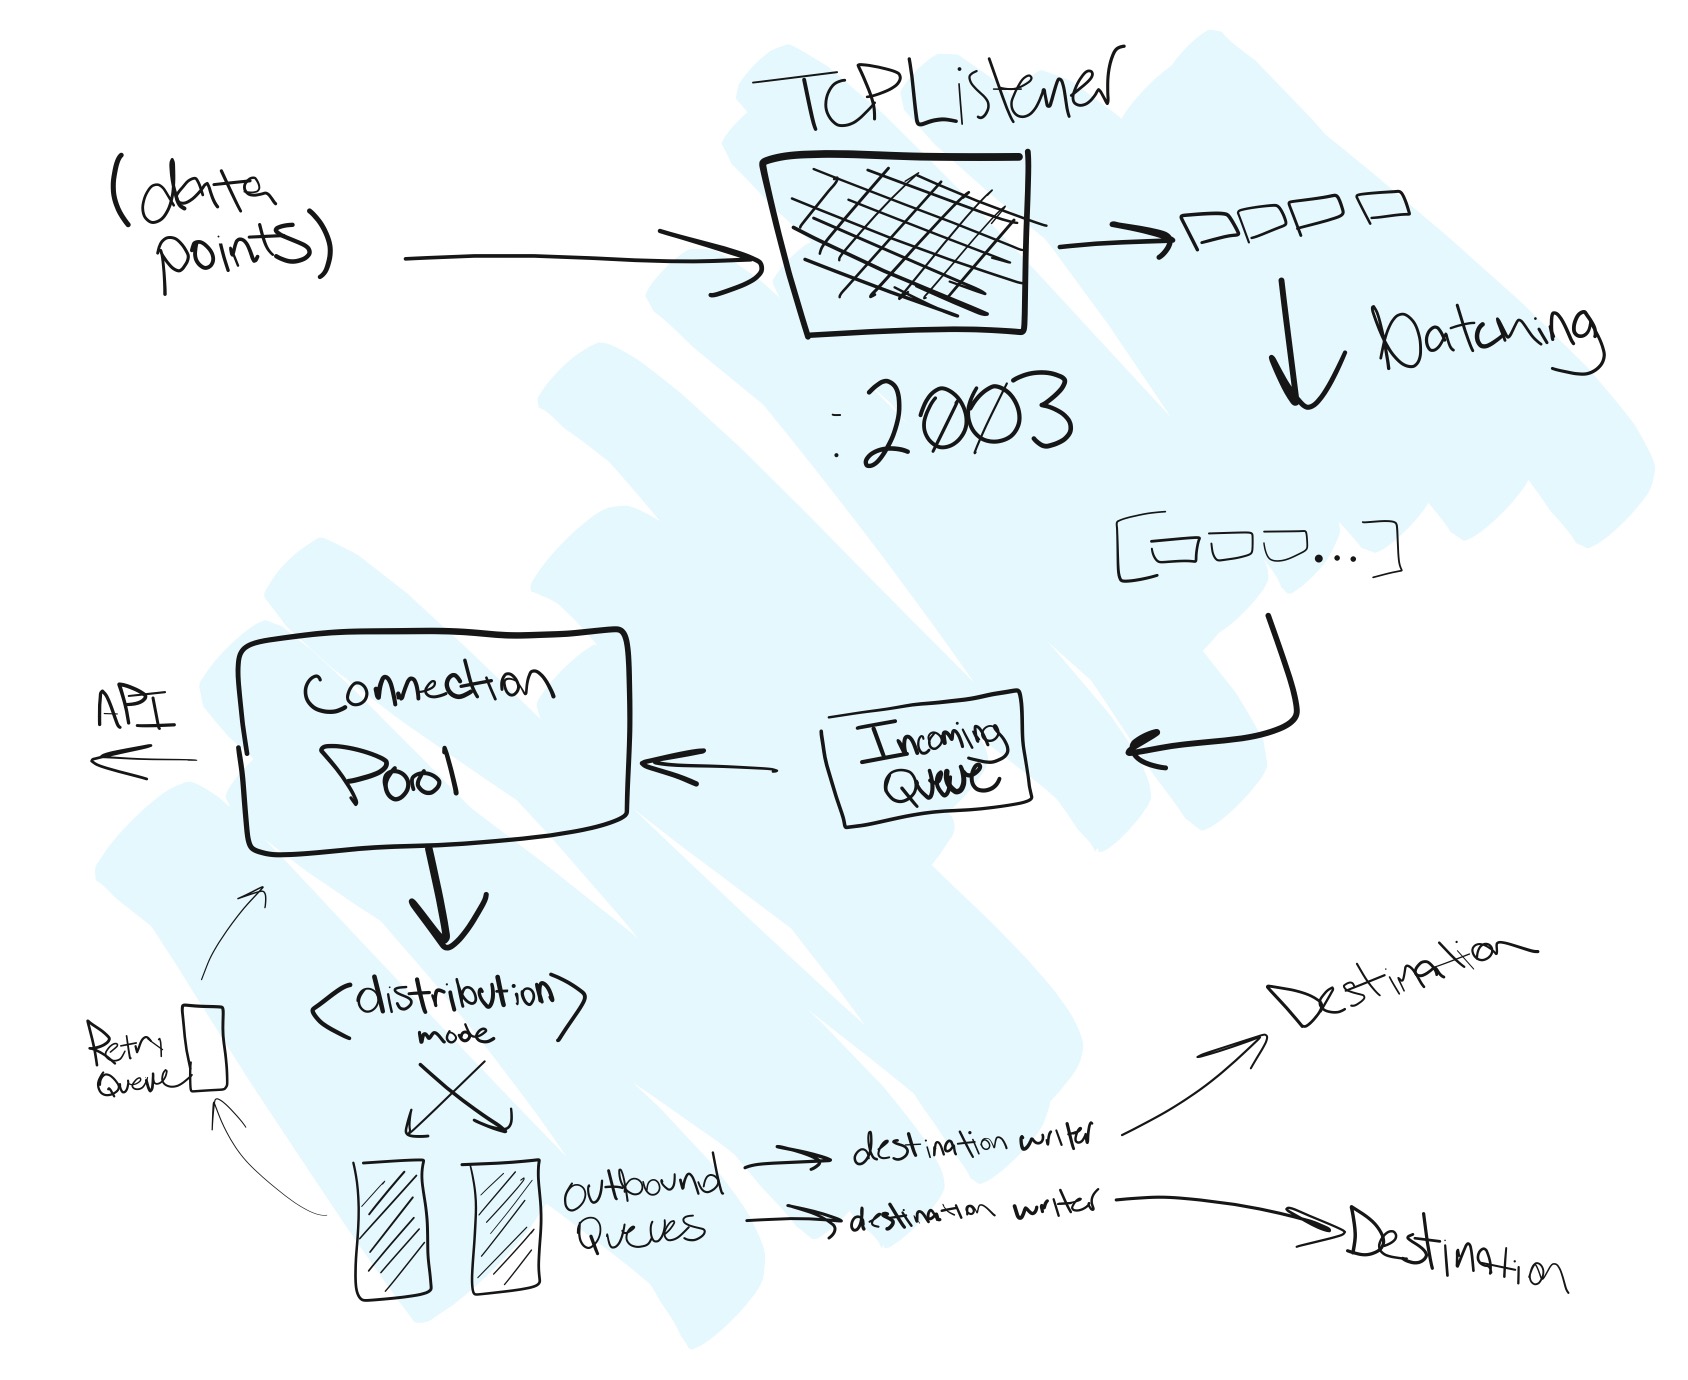 TCPListener
(data
points)
:2003
batching
[ ... ]
Incoming
Queue
Connection
Pool
API
<distribution
mode>
Retry
Queue
Outbound
Queues
destination writer
destination writer
Destination
Destination